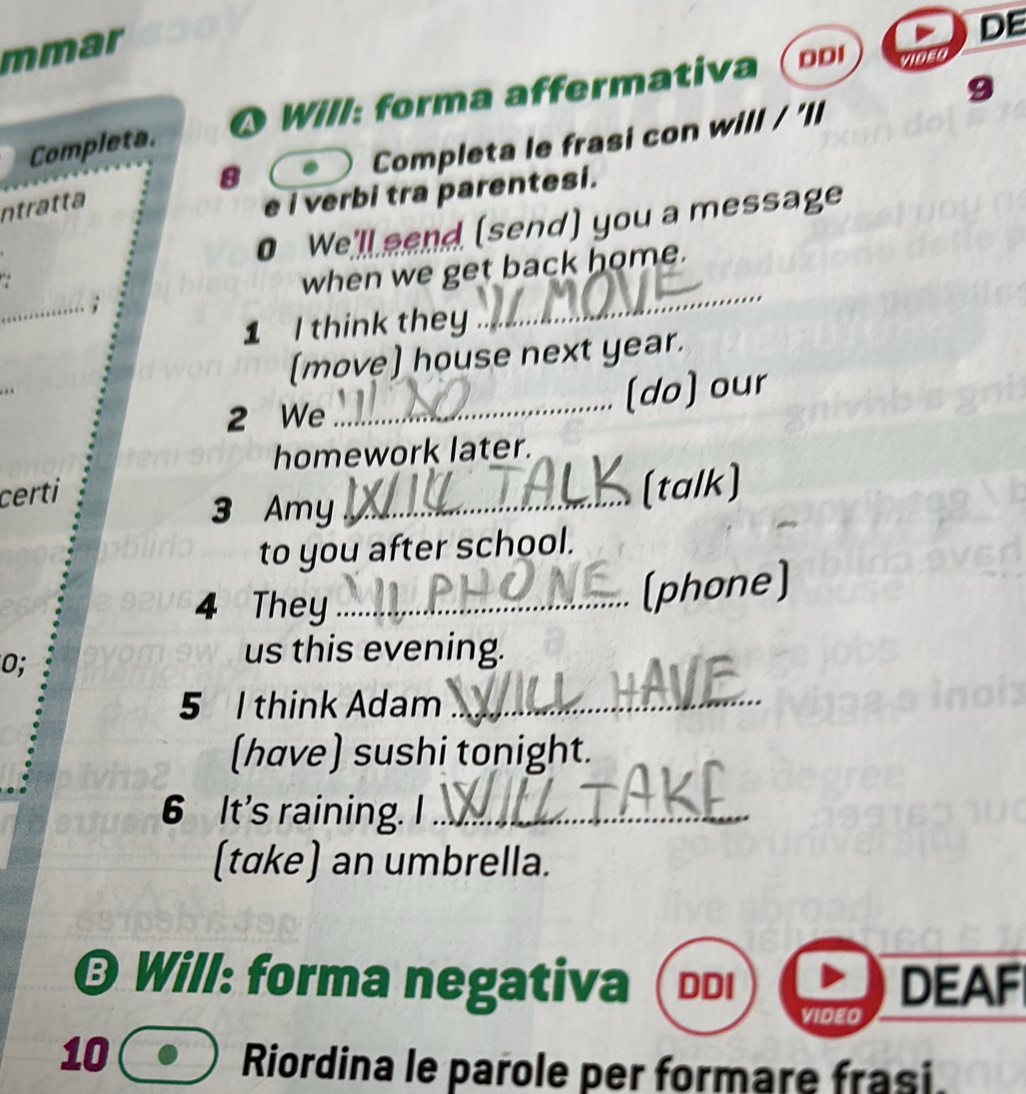 mmar
Completa.
ntratta
certi
o;
A Will: forma affermativa DDI VIDEO DE
9
8 Completa le frasi con will / 'll
e i verbi tra parentesi.
0 We'll send (send) you a message
when we get back home.
1 I think they 'll MOVE
(move) house next year.
2 We 'll DO (do) our
homework later.
3 Amy WILL TALK (talk)
to you after school.
4 They 'll PHONE (phone)
us this evening.
5 I think Adam WILL HAVE
(have) sushi tonight.
6 It's raining. I WILL TAKE
(take) an umbrella.
B Will: forma negativa DDI VIDEO DEAF
10 Riordina le parole per formare frasi.